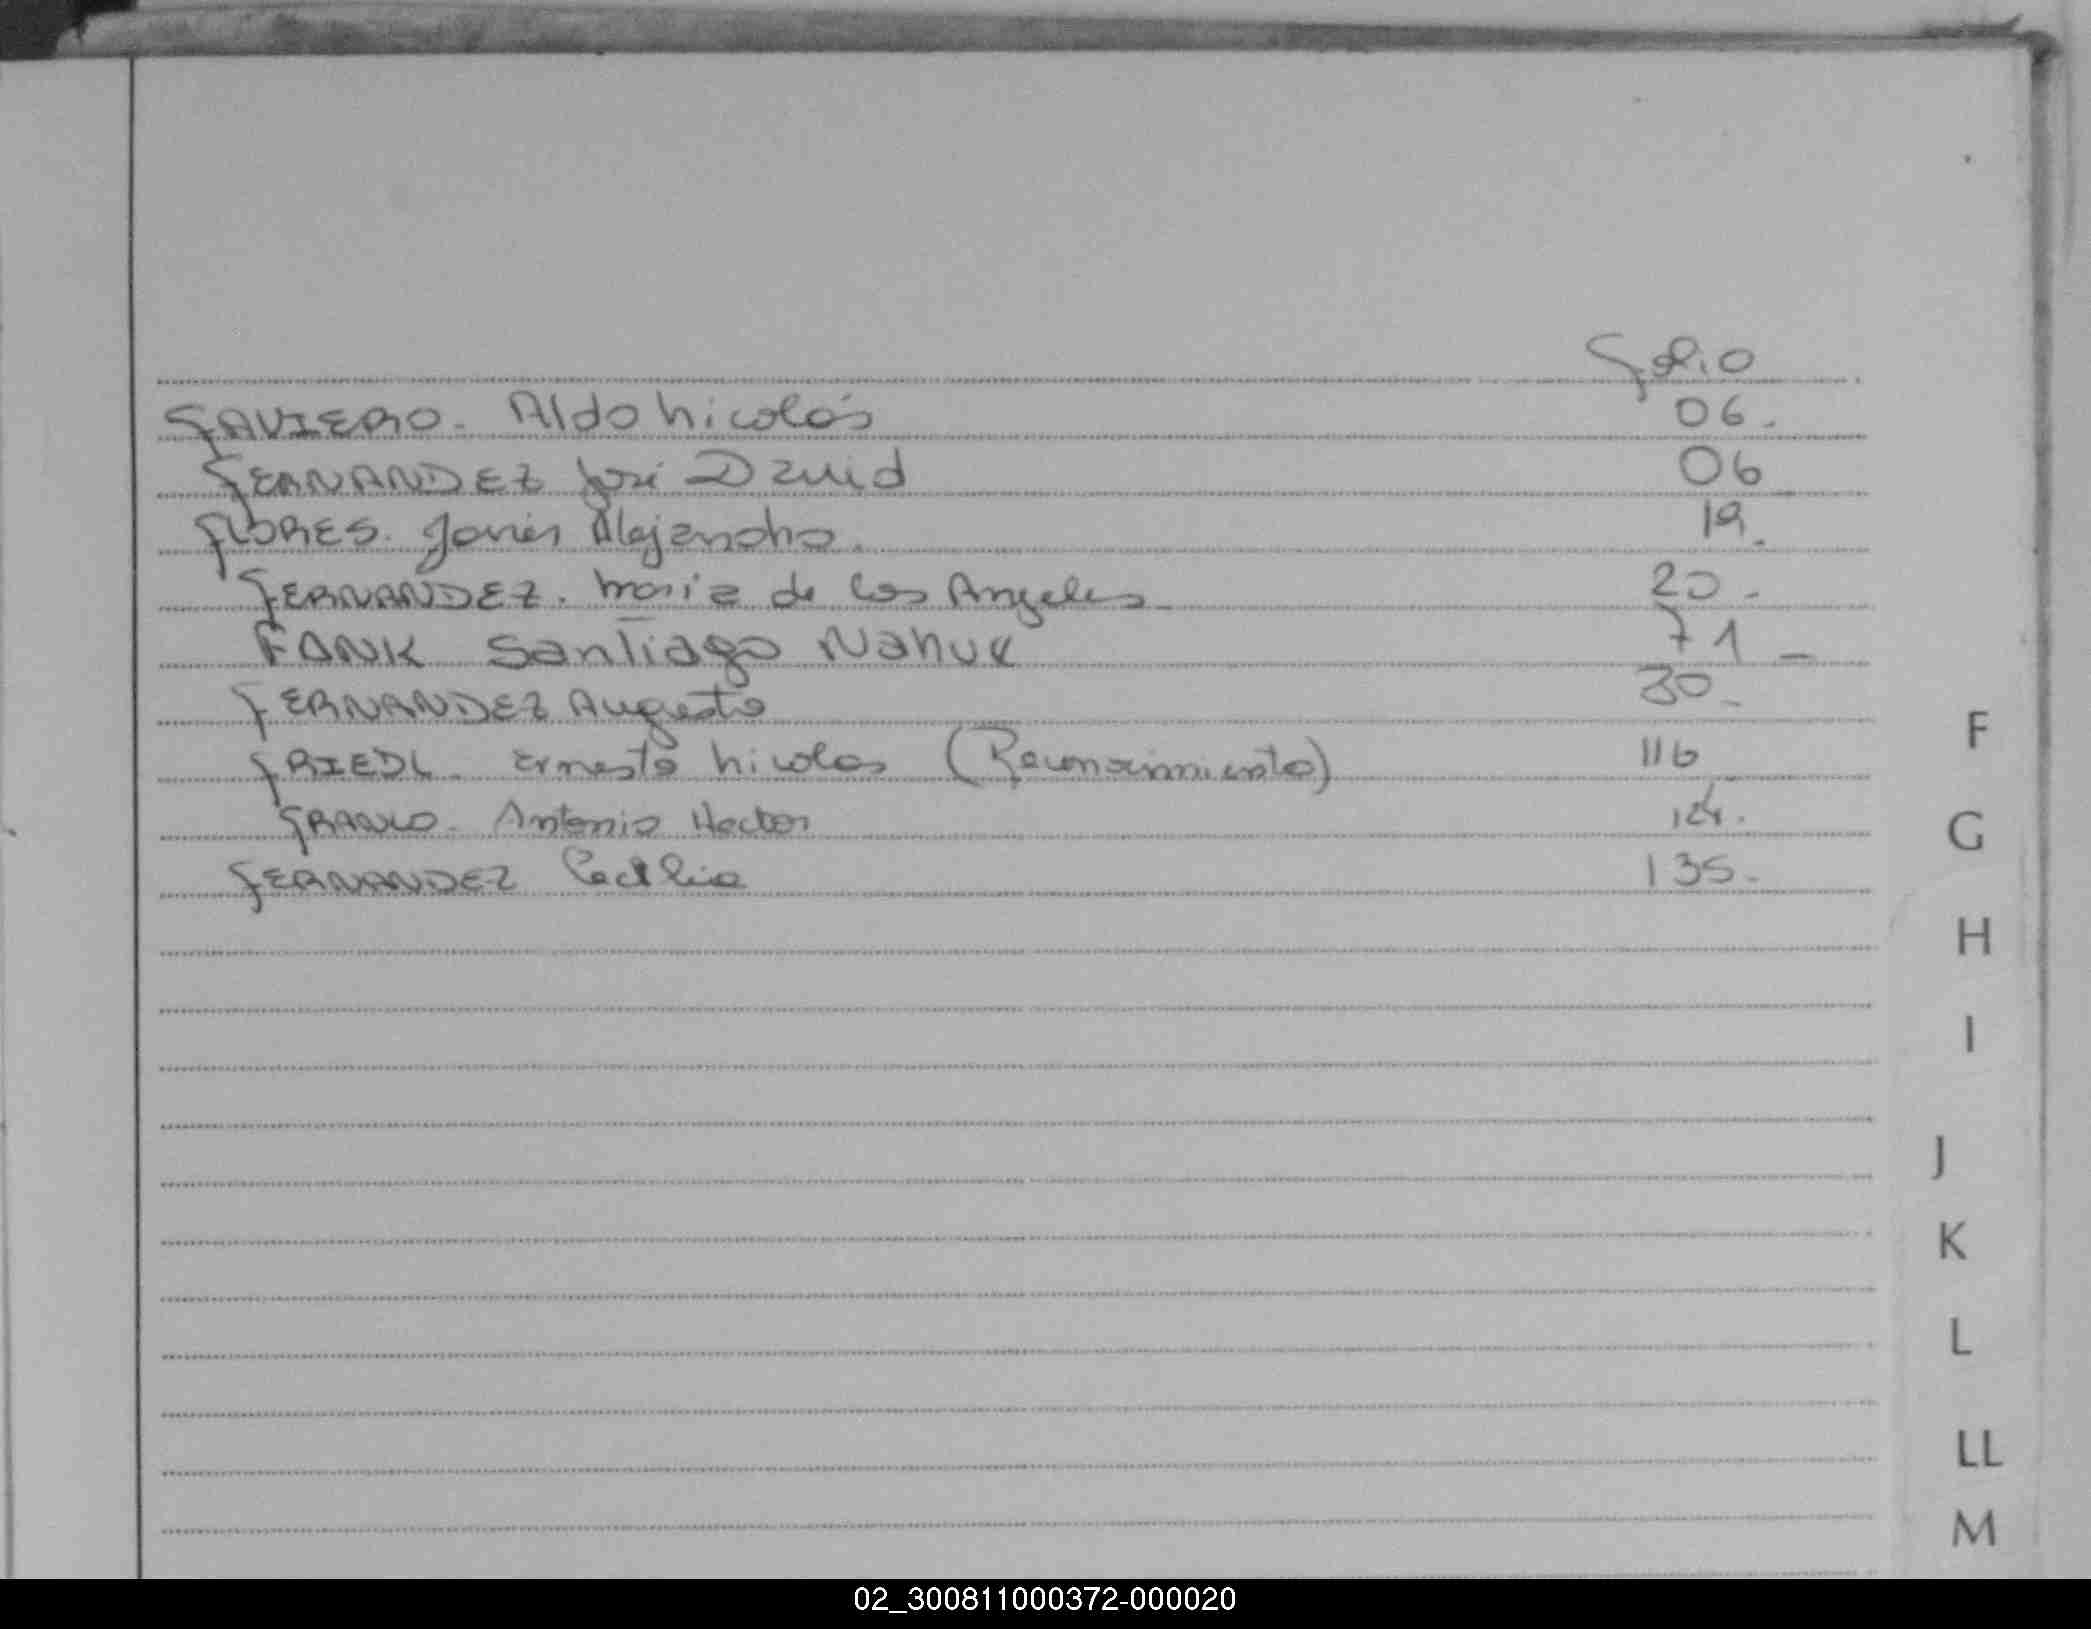 Folio
FAVIERO. Aldo Nicolás 06.
FERNANDEZ José David 06
FLORES. Javier Alejandro. 19.
FERNANDEZ. María de los Angeles 20.
FANK Santiago Nahue 71
FERNANDEZ Augusto 30.
F
FRIEDL. Ernesto Nicolas (Reconocimiento) 116
FRANCO. Antonio Hector
G
FERNANDEZ Cecilia 135.
H
I
J
K
L
LL
M
02_300811000372-000020